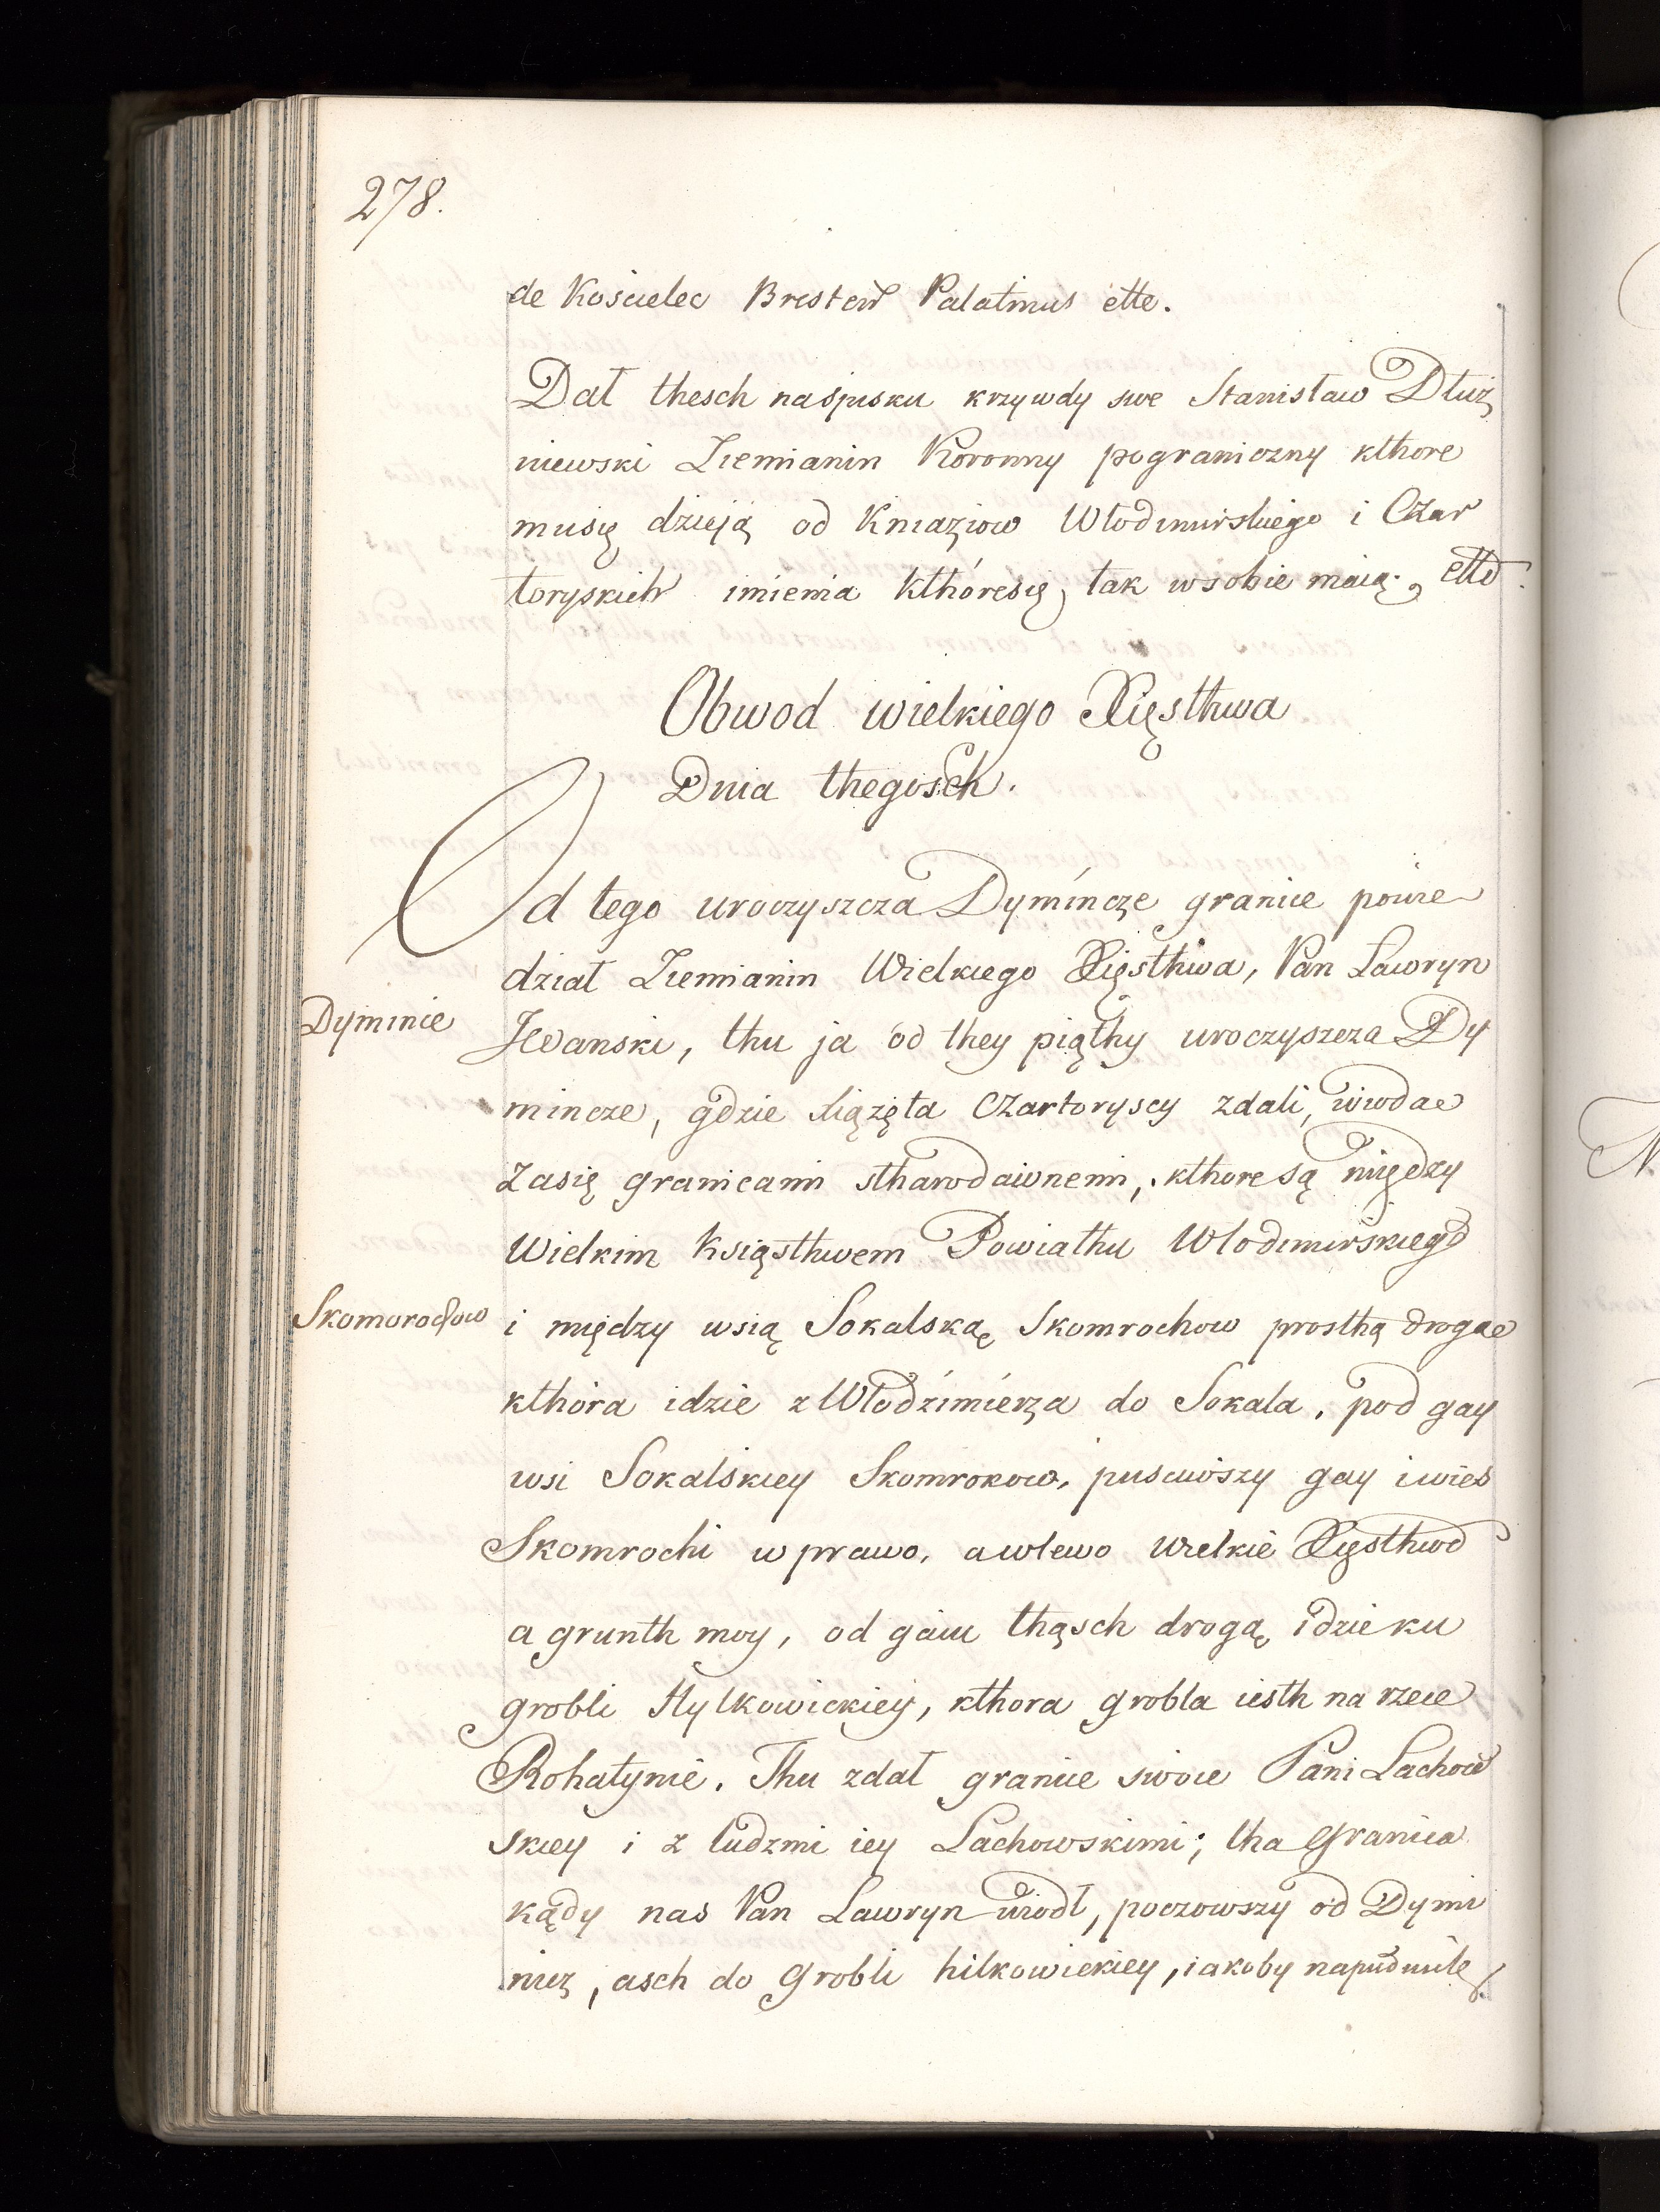 278.
de Kościelec Brestew Palatinus ette.
Dał thesch naspisku krzywdy swe Stanisław Dłuż
niewski Ziemianin Koronny pograniczny kthore
musię dzieją od Kniaziow Włodimirskiego i Czar
toryskich imienia kthóresię tak wsobie maią, ette.
Obwod wielkiego Xięsthwa
Dnia thegosch.
Od tego uroczyszcza Dymincze granice powie
dział Ziemianin Wielkiego Xięsthwa, Pan Ławryn
Dyminie
Iwanski, thu ja od they piąthy uroczyszcza Dy
mincze, gdzie xiążęta Czartoryscy zdali, wiodae
zasię granicami sthawdawnemi, kthore są między
Wielkim Księsthwem Powiathu Włodimirskiego
Skomorochow
i między wsią Sokalską Skomrochow prosthą drogae
kthóra idzie z Włodzimierza do Sokala, pod gay
wsi Sokalskiey Skomrokow, pusciwszy gay i wies
Skomrochi w prawo, a wlewo Wielkie Xięsthwo
a grunth moy, od gaiu thąsch drogą idzie ku
grobli Hylkowickiey, kthora grobla iesth na rzece
Rohatynie. Thu zdał granice swoie Pani Lachow
skiey i z ludzmi iey Lachowskimi; tha granica
kądy nas Pan Ławryn wiodł, poczowszy od Dymi
niez, asch do grobli hilkowickiey, iakoby napułmile